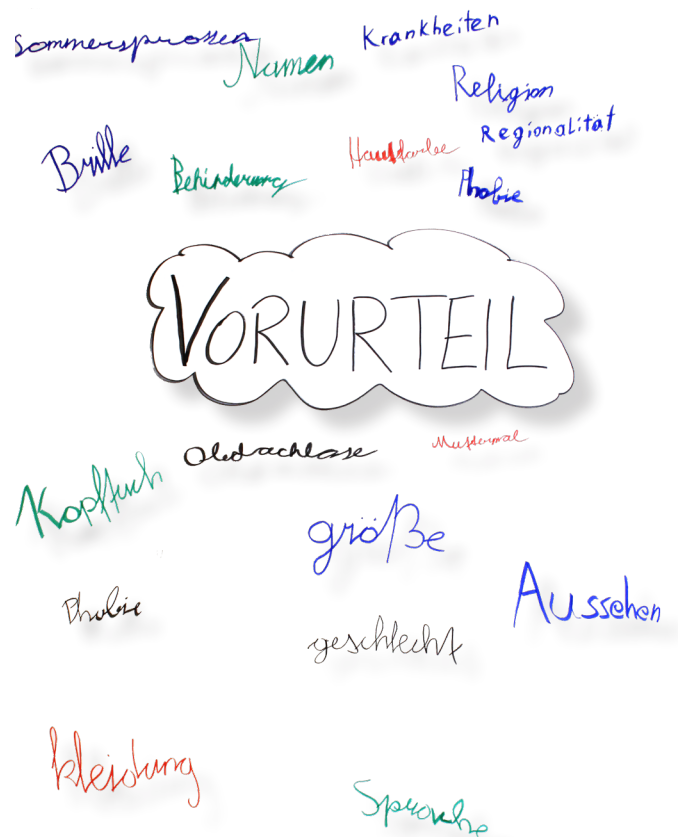 Sommersprossen
Namen
Krankheiten
Religion
Regionalität
Brille
Behinderung
Hautfarbe
Phobie
VORURTEIL
Obdachlose
Muttermal
Kopftuch
größe
Aussehen
Phobie
geschlecht
kleidung
Sprache